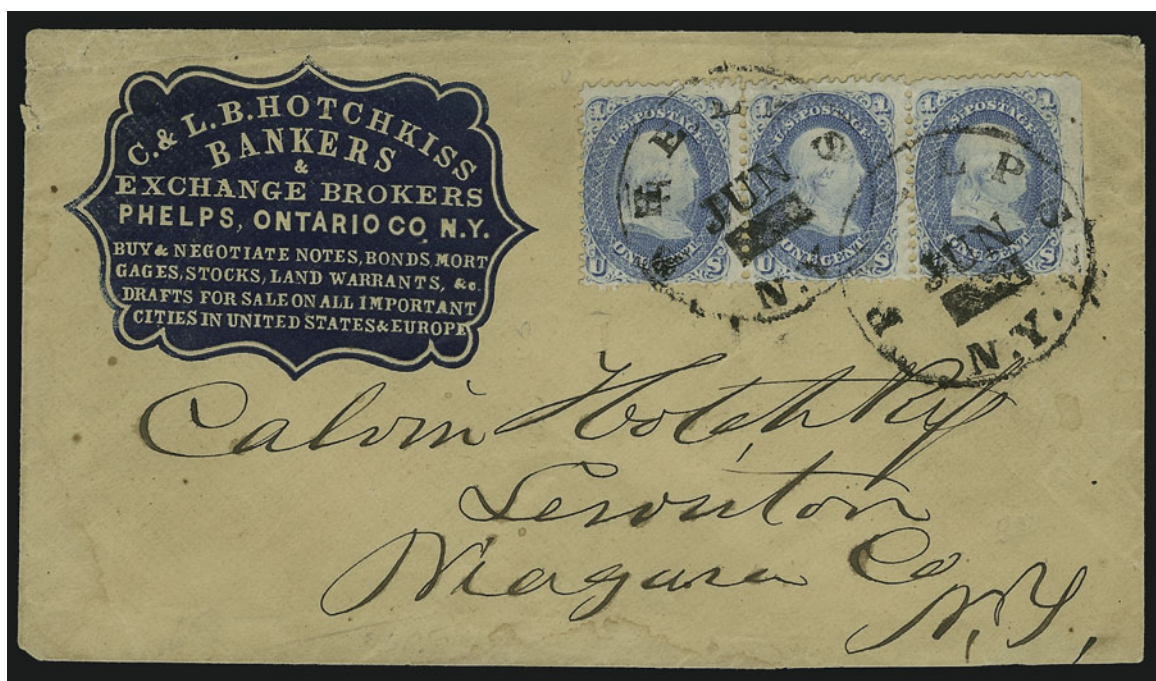 C. & L. B. HOTCHKISS
BANKERS
&
EXCHANGE BROKERS
PHELPS, ONTARIO CO N.Y.
BUY & NEGOTIATE NOTES, BONDS, MORT
GAGES, STOCKS, LAND WARRANTS, &c.
DRAFTS FOR SALE ON ALL IMPORTANT
CITIES IN UNITED STATES & EUROPE
1 U.S. POSTAGE 1
ONE CENT
U S
1 U.S. POSTAGE 1
ONE CENT
U S
1 U.S. POSTAGE 1
ONE CENT
U S
PHELPS
JUN
N.Y.
PHELPS
JUN
N.Y.
Calvin Hotchkiss
Lewiston
Niagara Co
N.Y.